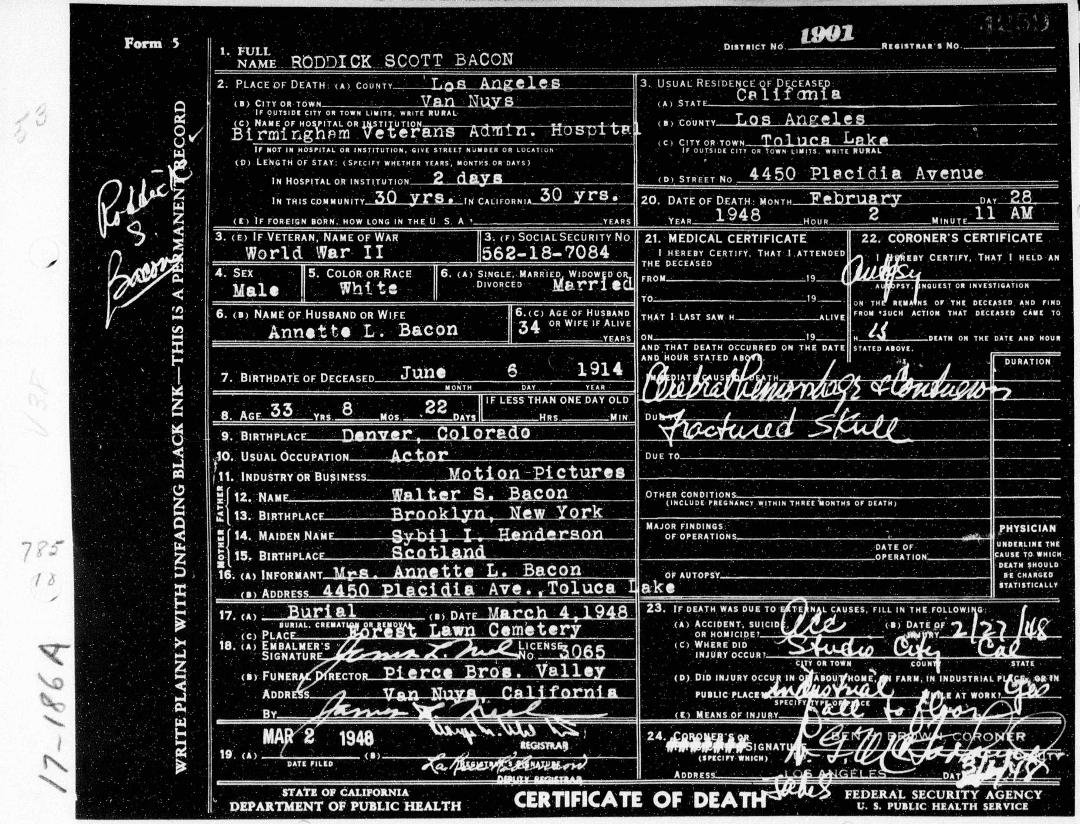 Form 5
DISTRICT NO. 1901 REGISTRAR'S NO. 4250
1. FULL NAME RODDICK SCOTT BACON
2. PLACE OF DEATH: (A) COUNTY Los Angeles
(B) CITY OR TOWN Van Nuys
IF OUTSIDE CITY OR TOWN LIMITS, WRITE RURAL
(C) NAME OF HOSPITAL OR INSTITUTION
Birmingham Veterans Admin. Hospital
IF NOT IN HOSPITAL OR INSTITUTION, GIVE STREET NUMBER OR LOCATION
(D) LENGTH OF STAY: (SPECIFY WHETHER YEARS, MONTHS OR DAYS)
IN HOSPITAL OR INSTITUTION 2 days
IN THIS COMMUNITY 30 yrs. IN CALIFORNIA 30 yrs.
(E) IF FOREIGN BORN, HOW LONG IN THE U. S. A? YEARS
3. USUAL RESIDENCE OF DECEASED
(A) STATE California
(B) COUNTY Los Angeles
(C) CITY OR TOWN Toluca Lake
IF OUTSIDE CITY OR TOWN LIMITS, WRITE RURAL
(D) STREET NO. 4450 Placidia Avenue
20. DATE OF DEATH: MONTH February DAY 28
YEAR 1948 HOUR 2 MINUTE 11 AM
3. (E) IF VETERAN, NAME OF WAR
World War II
3. (F) SOCIAL SECURITY NO
562-18-7084
4. SEX
Male
5. COLOR OR RACE
White
6. (A) SINGLE, MARRIED, WIDOWED OR DIVORCED Married
6. (B) NAME OF HUSBAND OR WIFE
Annette L. Bacon
6. (C) AGE OF HUSBAND OR WIFE IF ALIVE
34 YEARS
7. BIRTHDATE OF DECEASED June 6 1914
MONTH DAY YEAR
8. AGE 33 YRS. 8 MOS. 22 DAYS
IF LESS THAN ONE DAY OLD
HRS. MIN
9. BIRTHPLACE Denver, Colorado
10. USUAL OCCUPATION Actor
11. INDUSTRY OR BUSINESS Motion Pictures
FATHER
12. NAME Walter S. Bacon
13. BIRTHPLACE Brooklyn, New York
MOTHER
14. MAIDEN NAME Sybil I. Henderson
15. BIRTHPLACE Scotland
16. (A) INFORMANT Mrs. Annette L. Bacon
(B) ADDRESS 4450 Placidia Ave., Toluca Lake
17. (A) Burial (B) DATE March 4, 1948
BURIAL, CREMATION OR REMOVAL
(C) PLACE Forest Lawn Cemetery
18. (A) EMBALMER'S SIGNATURE LICENSE NO. 3065
(B) FUNERAL DIRECTOR Pierce Bros. Valley
ADDRESS Van Nuys, California
BY
MAR 2 1948
REGISTRAR
19. (A) (B)
DATE FILED REGISTRAR'S SIGNATURE
DEPUTY REGISTRAR
21. MEDICAL CERTIFICATE
I HEREBY CERTIFY, THAT I ATTENDED THE DECEASED
FROM 19
TO 19
THAT I LAST SAW H ALIVE
ON 19
AND THAT DEATH OCCURRED ON THE DATE AND HOUR STATED ABOVE
22. CORONER'S CERTIFICATE
I HEREBY CERTIFY, THAT I HELD AN
Autopsy
AUTOPSY, INQUEST OR INVESTIGATION
ON THE REMAINS OF THE DECEASED AND FIND FROM SUCH ACTION THAT DECEASED CAME TO
H is DEATH ON THE DATE AND HOUR STATED ABOVE.
DURATION
IMMEDIATE CAUSE OF DEATH
Cerebral Hemorrhage & Contusion
DUE TO Fractured Skull
DUE TO
OTHER CONDITIONS
(INCLUDE PREGNANCY WITHIN THREE MONTHS OF DEATH)
MAJOR FINDINGS
OF OPERATIONS
DATE OF OPERATION
OF AUTOPSY
PHYSICIAN
UNDERLINE THE CAUSE TO WHICH DEATH SHOULD BE CHARGED STATISTICALLY
23. IF DEATH WAS DUE TO EXTERNAL CAUSES, FILL IN THE FOLLOWING:
(A) ACCIDENT, SUICIDE OR HOMICIDE? Acc (B) DATE OF INJURY 2/27/48
(C) WHERE DID INJURY OCCUR? Studio City Cal
CITY OR TOWN COUNTY STATE
(D) DID INJURY OCCUR IN OR ABOUT HOME, ON FARM, IN INDUSTRIAL PLACE, OR IN
PUBLIC PLACE? industrial WHILE AT WORK? Yes
SPECIFY TYPE OF PLACE
(E) MEANS OF INJURY Fall to floor
24. CORONER'S OR SIGNATURE BEN BROWN CORONER
(SPECIFY WHICH)
ADDRESS LOS ANGELES DATE
STATE OF CALIFORNIA
DEPARTMENT OF PUBLIC HEALTH
CERTIFICATE OF DEATH
FEDERAL SECURITY AGENCY
U. S. PUBLIC HEALTH SERVICE
WRITE PLAINLY WITH UNFADING BLACK INK—THIS IS A PERMANENT RECORD
Roddick
S.
Bacon
53
V35
785
18
17-186A